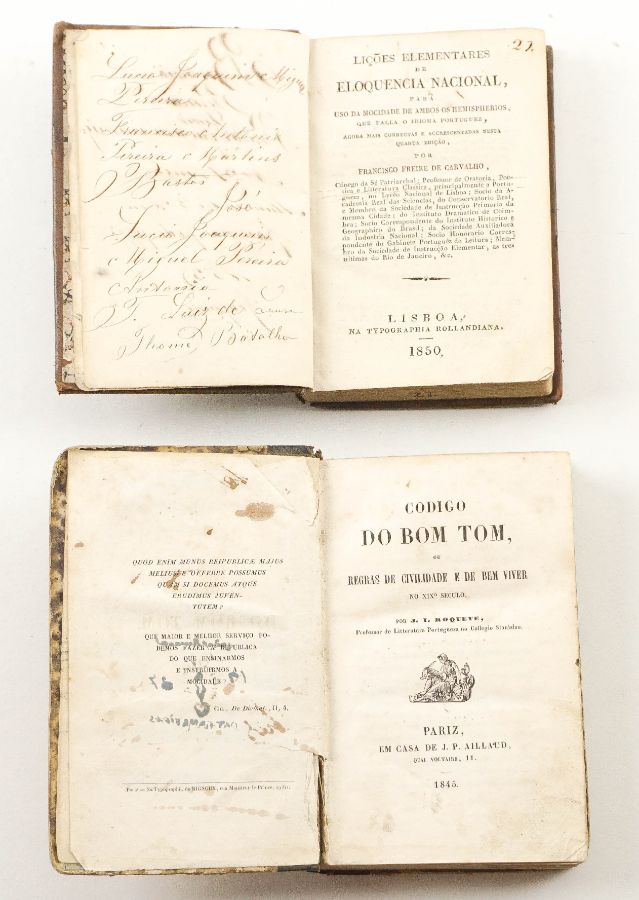 Lucio Joaquim e Miguel
Pereira
Francisco e Antonio
Pereira e Martins
Bastos
José
Lucio Joaquim
e Miguel Pereira
Antonio
J. Luiz de
Thomé Batalha
22.
LIÇÕES ELEMENTARES
DE
ELOQUENCIA NACIONAL,
PARA
USO DA MOCIDADE DE AMBOS OS HEMISPHERIOS,
QUE FALLA O IDIOMA PORTUGUEZ,
AGORA MAIS CORRECTAS E ACCRESCENTADAS NESTA
QUARTA EDIÇÃO,
POR
FRANCISCO FREIRE DE CARVALHO,
Cónego da Sé Patriarchal; Professor de Oratoria, Poe-
tica e Litteratura Classica, principalmente a Portu-
gueza, no Lyceo Nacional de Lisboa; Socio da A-
cademia Real das Sciencias, do Conservatorio Real,
e Membro da Sociedade de Instrucção Primaria da
mesma Cidade; do Instituto Dramatico de Coim-
bra; Socio Correspondente do Instituto Historico e
Geographico do Brasil; da Sociedade Auxiliadora
da Industria Nacional; Socio Honorario Corres-
pondente do Gabinete Portuguez de Leitura; Mem-
bro da Sociedade de Instrucção Elementar, as tres
ultimas do Rio de Janeiro, &c.
LISBOA,
NA TYPOGRAPHIA ROLLANDIANA.
1850.
QUOD ENIM MUNUS REIPUBLICÆ MAJUS
MELIUSVE OFFERRE POSSUMUS
QUAM SI DOCEMUS ATQUE
ERUDIMUS JUVEN-
TUTEM?
QUE MAIOR E MELHOR SERVIÇO PO-
DEMOS FAZER Á REPUBLICA
DO QUE ENSINARMOS
E INSTRUIRMOS A
MOCIDADE?
Cic., De Divinat., II, 4.
CODIGO
DO BOM TOM,
OU
REGRAS DE CIVILIDADE E DE BEM VIVER
NO XIXº SECULO,
POR J. I. ROQUETE,
Professor de Litteratura Portugueza no Collegio Stanislau.
PARIZ,
EM CASA DE J. P. AILLAUD,
QUAI VOLTAIRE, 11.
1845.